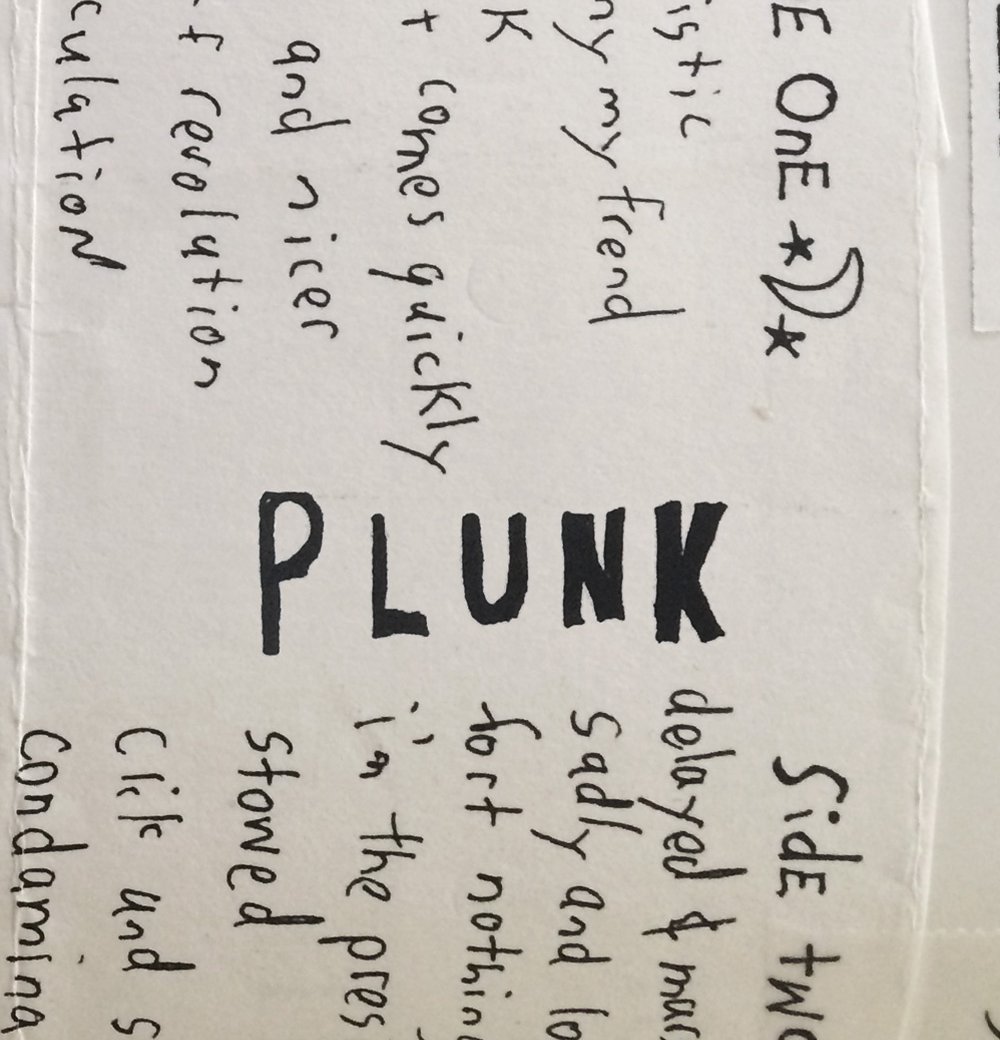 E OnE
istic
ny my frend
K
t comes quickly
and nicer
f revolution
culatioN
PLUNK
SidE two
delayed & mar
sadly and lo
fort nothin
in the pres
stoNed
and s
Condamina